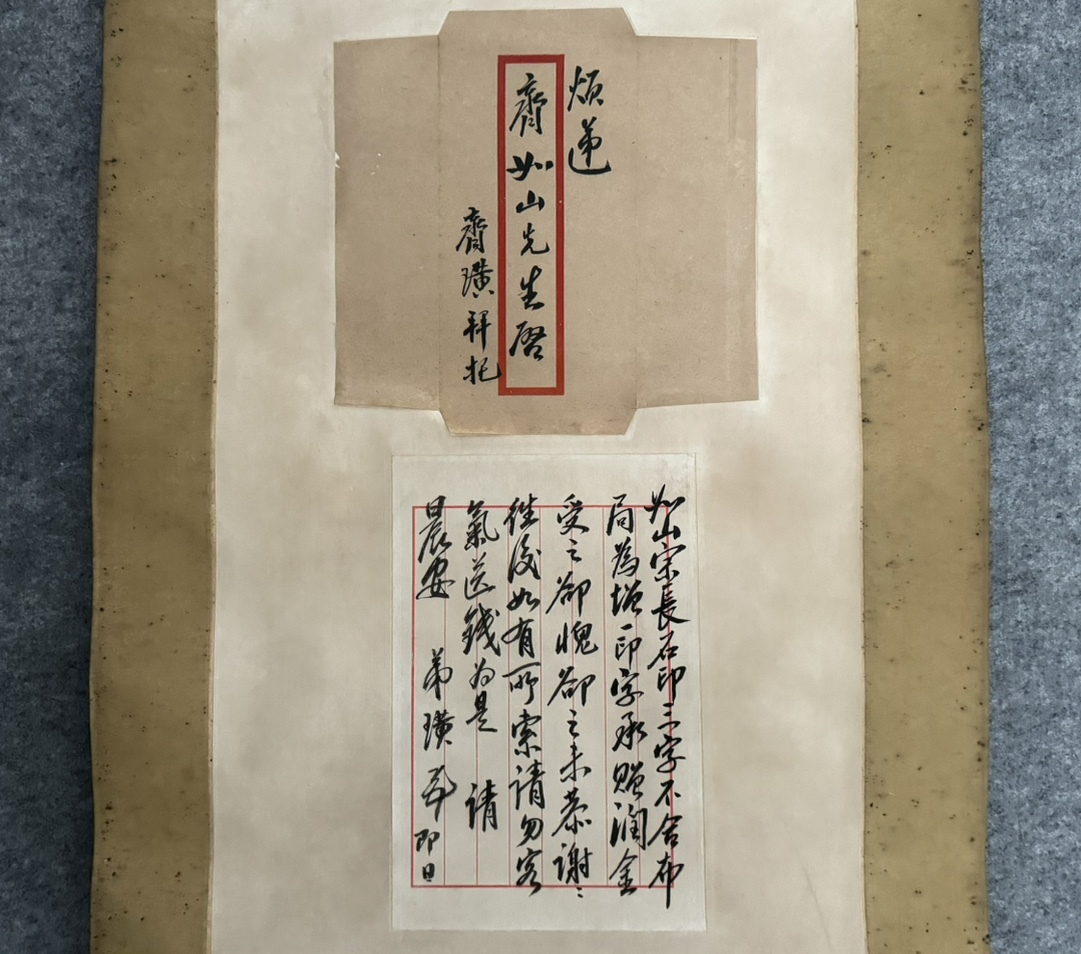 煩遞
齊如山先生啓
齊璜拜托
如山宗長石印三字不合布
局為增一印字承贈潤金
受之卻愧卻之未恭謝〻
往後如有所索請勿客
氣送錢为是 請
晨安 弟璜頁 即日